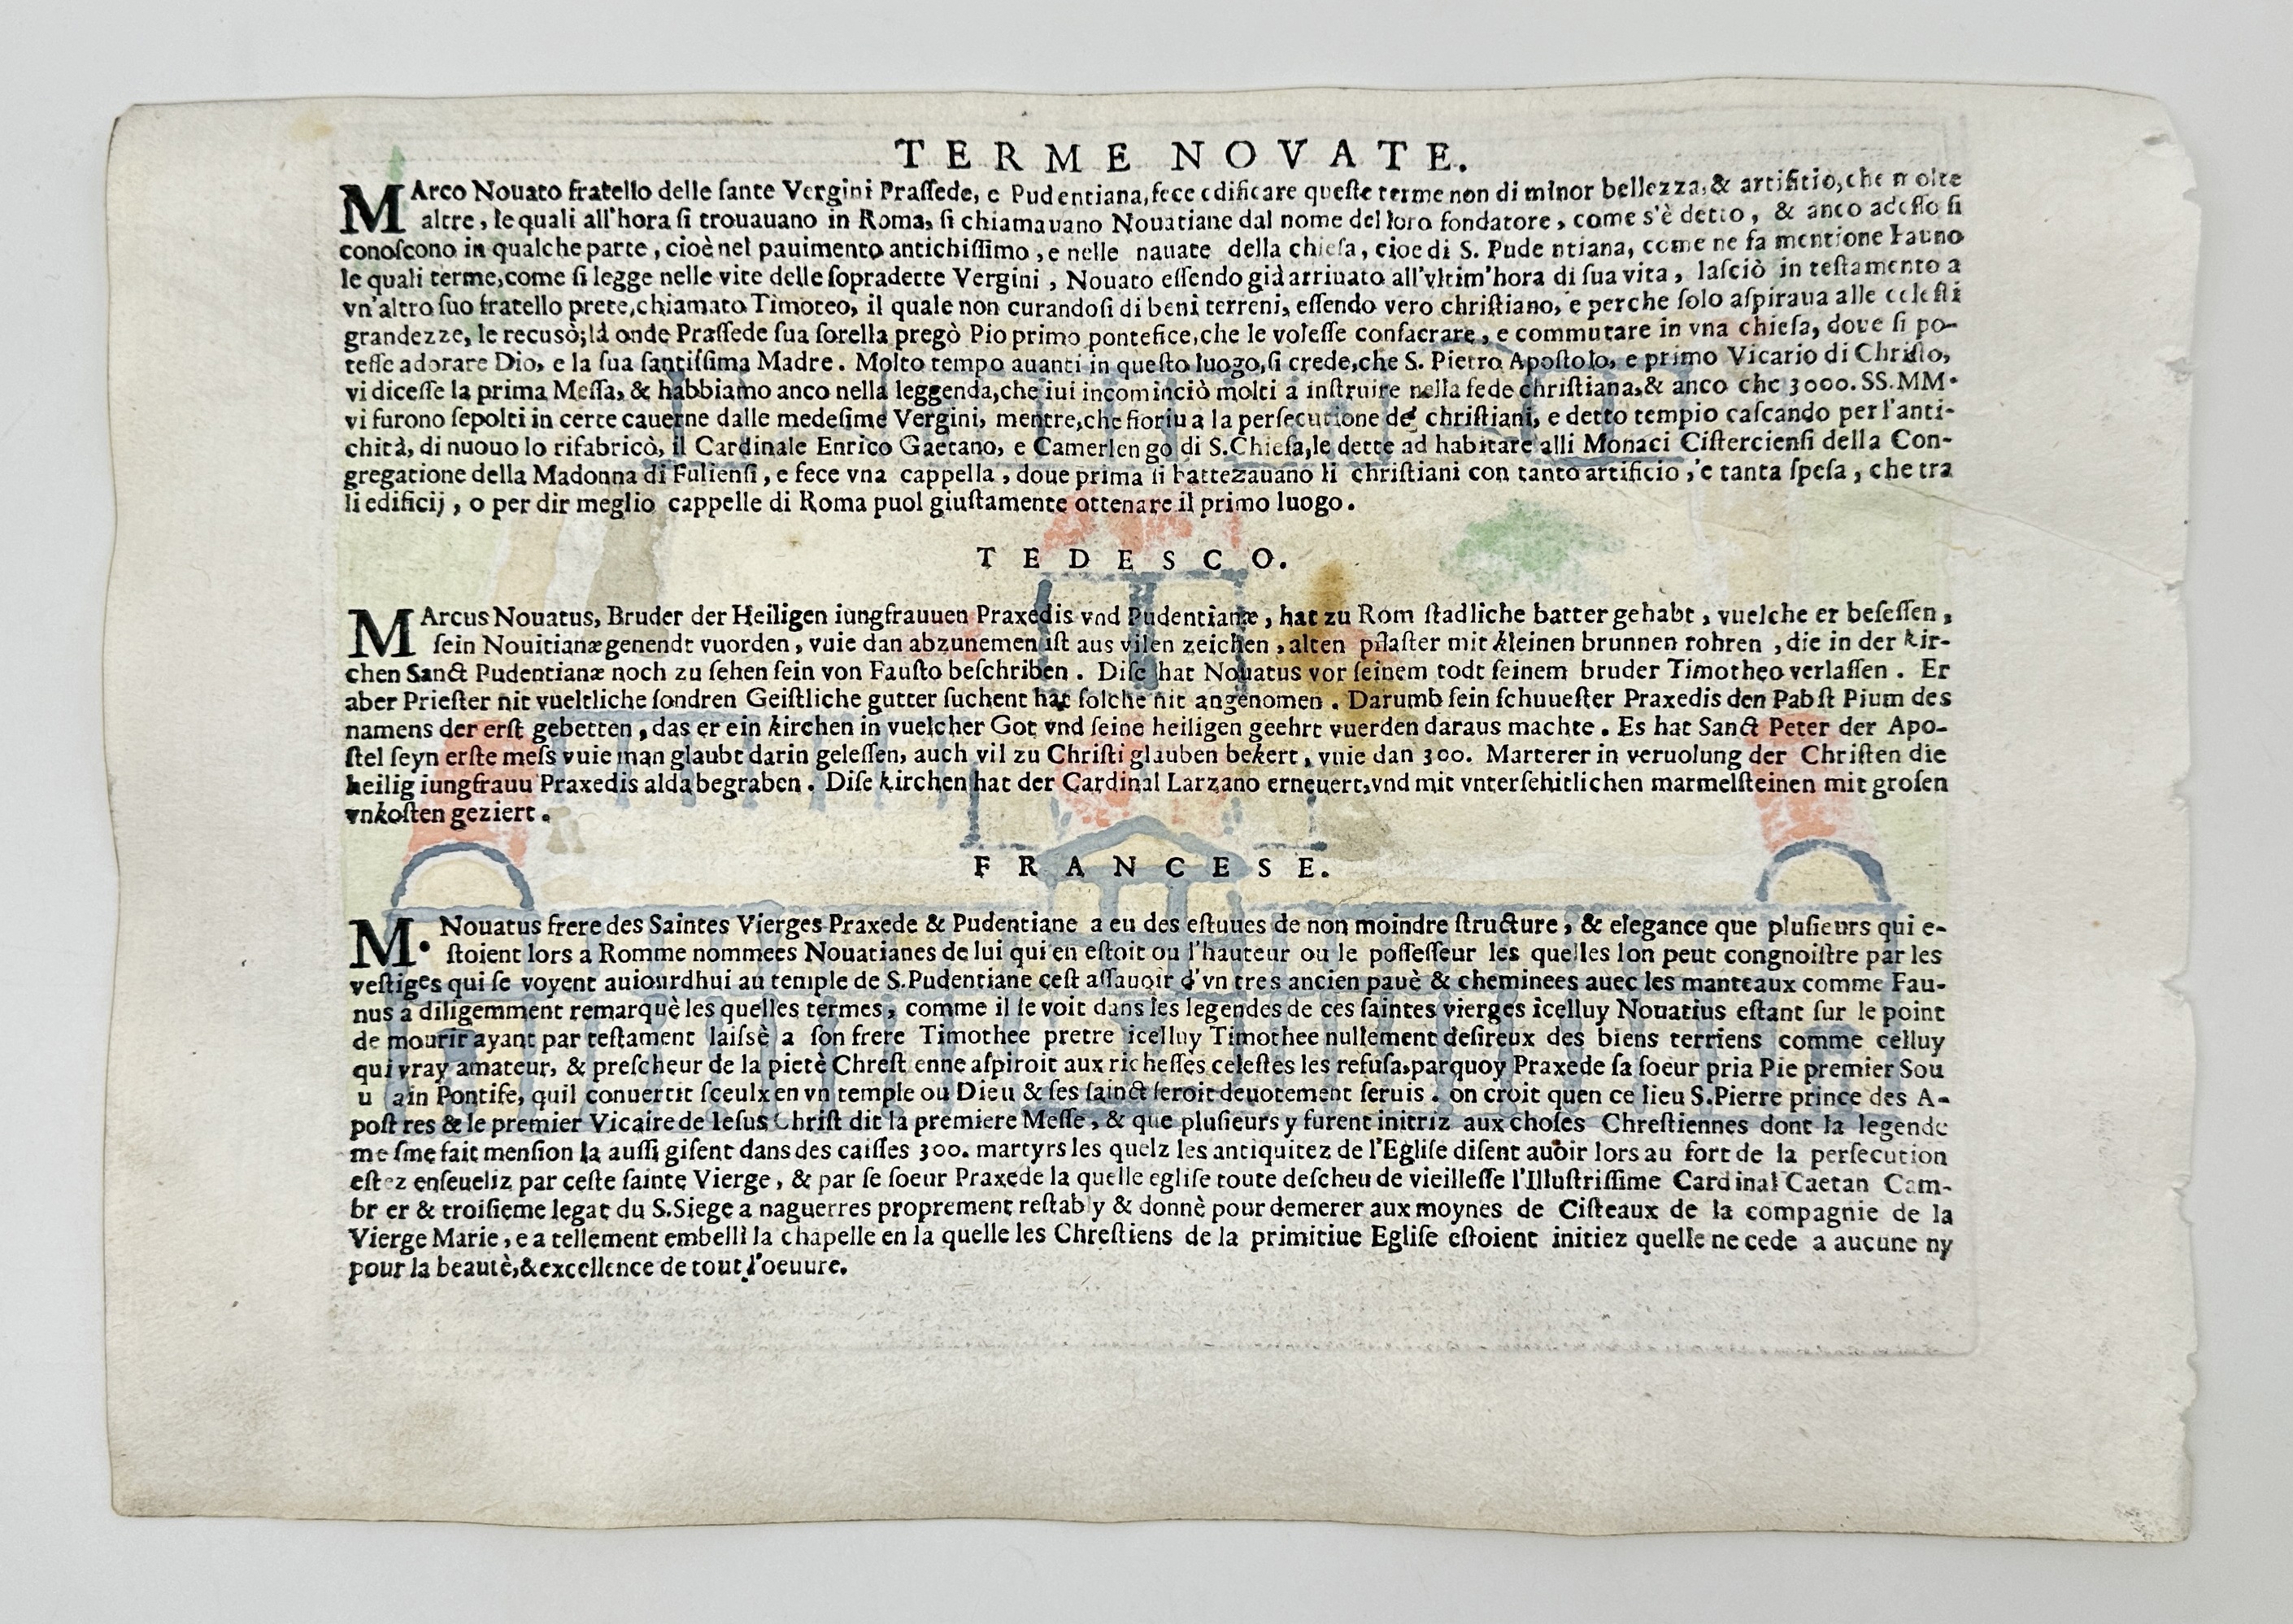 TERME NOVATE.
MArco Nouato fratello delle ſante Vergini Praſſede, e Pudentiana, fece edificare queſte terme non di minor bellezza, & artifitio, che molte
altre, le quali all'hora ſi trouauano in Roma, ſi chiamauano Nouatiane dal nome del loro fondatore, come s'è detto, & anco adeſſo ſi
conoſcono in qualche parte, cioè nel pauimento antichiſſimo, e nelle nauate della chieſa, cioe di S. Pude ntiana, come ne fa mentione Fauno
le quali terme, come ſi legge nelle vite delle ſopradette Vergini, Nouato eſſendo già arriuato all'vltim'hora di ſua vita, laſciò in teſtamento a
vn'altro ſuo fratello prete, chiamato Timoteo, il quale non curandoſi di beni terreni, eſſendo vero chriſtiano, e perche ſolo aſpiraua alle celeſti
grandezze, le recusò; là onde Praſſede ſua ſorella pregò Pio primo pontefice, che le voleſſe conſacrare, e commutare in vna chieſa, doue ſi po-
teſſe adorare Dio, e la ſua ſantiſſima Madre. Molto tempo auanti in queſto luogo, ſi crede, che S. Pietro Apoſtolo, e primo Vicario di Chriſto,
vi diceſſe la prima Meſſa, & habbiamo anco nella leggenda, che iui incominciò molti a inſtruire nella fede chriſtiana, & anco che 3000. SS. MM.
vi furono ſepolti in certe cauerne dalle medeſime Vergini, mentre, che fioriua la perſecutione de' chriſtiani, e detto tempio caſcando per l'anti-
chità, di nuouo lo rifabricò, il Cardinale Enrico Gaetano, e Camerlen go di S. Chieſa, le dette ad habitare alli Monaci Ciſtercienſi della Con-
gregatione della Madonna di Fulienſi, e fece vna cappella, doue prima ſi battezauano li chriſtiani con tanto artificio, e tanta ſpeſa, che tra
li edificij, o per dir meglio cappelle di Roma puol giuſtamente ottenare il primo luogo.
TEDESCO.
MArcus Nouatus, Bruder der Heiligen iungfrauuen Praxedis vnd Pudentianæ, hat zu Rom ſtadliche batter gehabt, vuelche er beſeſſen,
ſein Nouitianæ genendt vuorden, vuie dan abzunemen iſt aus vilen zeichen, alten pilaſter mit kleinen brunnen rohren, die in der kir-
chen Sanct Pudentianæ noch zu ſehen ſein von Fauſto beſchriben. Diſe hat Nouatus vor ſeinem todt ſeinem bruder Timotheo verlaſſen. Er
aber Prieſter nit vueltliche ſondren Geiſtliche gutter ſuchent hat ſolche nit angenomen. Darumb ſein ſchuueſter Praxedis den Pabſt Pium des
namens der erſt gebetten, das er ein kirchen in vuelcher Got vnd ſeine heiligen geehrt vuerden daraus machte. Es hat Sanct Peter der Apo-
ſtel ſeyn erſte meſs vuie man glaubt darin geleſſen, auch vil zu Chriſti glauben bekert, vuie dan 300. Marterer in veruolung der Chriſten die
heilig iungfrauu Praxedis alda begraben. Diſe kirchen hat der Cardinal Larzano erneuert, vnd mit vnterſehitlichen marmelſteinen mit groſen
vnkoſten geziert.
FRANCESE.
M. Nouatus frere des Saintes Vierges Praxede & Pudentiane a eu des eſtuues de non moindre ſtructure, & elegance que pluſieurs qui e-
ſtoient lors a Romme nommees Nouatianes de lui qui en eſtoit ou l'hauteur ou le poſſeſſeur les quelles lon peut congnoiſtre par les
veſtiges qui ſe voyent auiourdhui au temple de S. Pudentiane ceſt aſſauoir d'vn tres ancien pauè & cheminees auec les manteaux comme Fau-
nus a diligemment remarquè les quelles termes, comme il ſe voit dans les legendes de ces ſaintes vierges icelluy Nouatius eſtant ſur le point
de mourir ayant par teſtament laiſsè a ſon frere Timothee pretre icelluy Timothee nullement deſireux des biens terriens comme celluy
qui vray amateur, & preſcheur de la pietè Chreſt enne aſpiroit aux richeſſes celeſtes les refuſa, parquoy Praxede ſa ſoeur pria Pie premier Sou
u ain Pontife, quil conuertit ſceulx en vn temple ou Dieu & ſes ſainct ſeroit deuotement ſeruis. on croit quen ce lieu S. Pierre prince des A-
poſt res & le premier Vicaire de Ieſus Chriſt dit la premiere Meſſe, & que pluſieurs y furent initriz aux choſes Chreſtiennes dont la legende
me ſme fait menſion la auſſi giſent dans des caiſſes 300. martyrs les quelz les antiquitez de l'Egliſe diſent auoir lors au fort de la perſecution
eſtez enſeueliz par ceſte ſainte Vierge, & par ſe ſoeur Praxede la quelle egliſe toute deſcheu de vieilleſſe l'Illuſtriſſime Cardinal Caetan Cam-
br er & troiſieme legat du S. Siege a naguerres proprement reſtably & donnè pour demerer aux moynes de Ciſteaux de la compagnie de la
Vierge Marie, e a tellement embelli la chapelle en la quelle les Chreſtiens de la primitiue Egliſe eſtoient initiez quelle ne cede a aucune ny
pour la beautè, & excellence de tout l'oeuure.